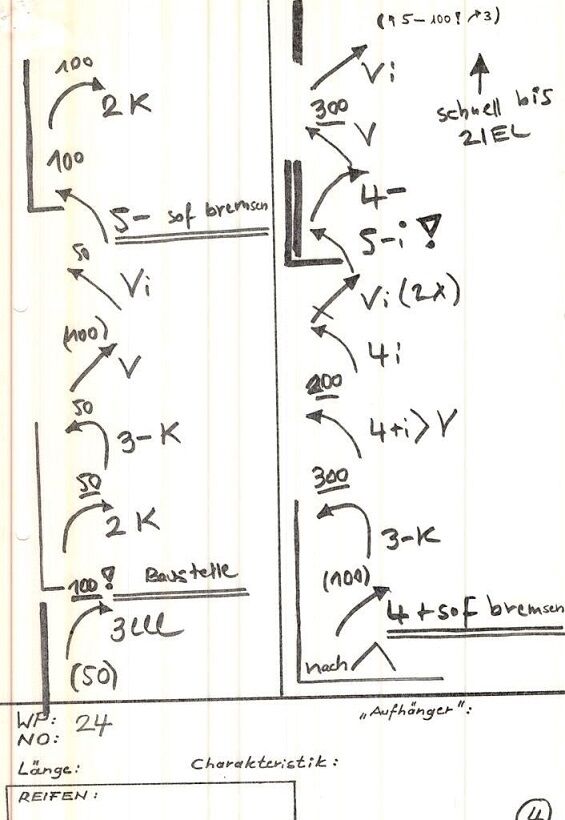 100
2K
100
5- sof bremsen
50
Vi
(100)
V
50
3-K
50
2K
100! Baustelle
(50)
(↰ 5-100! ↗3)
Vi
schnell bis
ZIEL
300
V
4-
5-i!
Vi (2X)
4i
200
4+i>V
300
3-K
(100)
4+sof bremsen
nach
WP: 24
NO:
„Aufhänger":
Länge:
Charakteristik:
REIFEN:
4